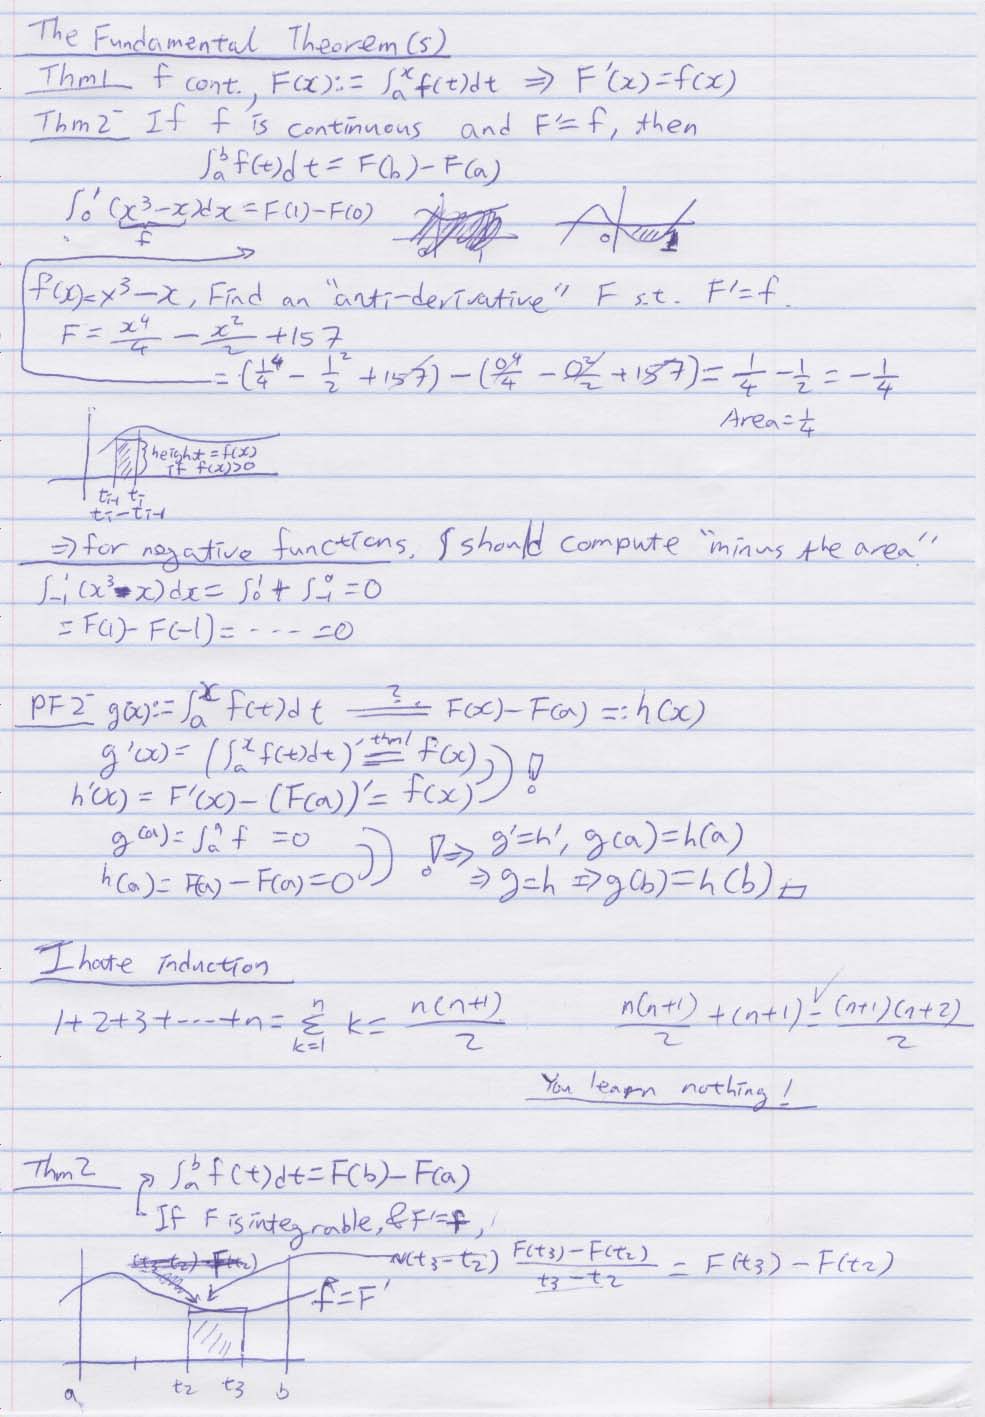 The Fundamental Theorem(s)
Thm1 f cont., F(x) := ∫ₐˣ f(t)dt ⇒ F'(x)=f(x)
Thm2 If f is continuous and F'=f, then
∫ₐᵇ f(t)dt = F(b)-F(a)
∫₀¹ (x³-x)dx = F(1)-F(0)
f
0 1
f(x)=x³-x, Find an "anti-derivative" F s.t. F'=f.
F = x⁴/4 - x²/2 + 157
= (1⁴/4 - 1²/2 + 157) - (0⁴/4 - 0²/2 + 157) = 1/4 - 1/2 = -1/4
Area = 1/4
height = f(x)
if f(x)>0
tᵢ₋₁ tᵢ
tᵢ - tᵢ₋₁
⇒ for negative functions, ∫ should compute "minus the area"
∫₋₁¹ (x³-x)dx = ∫₀¹ + ∫₋₁⁰ = 0
= F(1)-F(-1) = ---- = 0
PF2 g(x) := ∫ₐˣ f(t)dt =?= F(x)-F(a) =: h(x)
g'(x) = (∫ₐˣ f(t)dt)' =thm1= f(x)
h'(x) = F'(x)-(F(a))' = f(x) !
g(a) = ∫ₐᵃ f = 0 ! ⇒ g'=h', g(a)=h(a)
h(a) = F(a)-F(a) = 0 ⇒ g=h ⇒ g(b)=h(b) □
I hate induction
1+2+3+----+n = Σₖ₌₁ⁿ k = n(n+1)/2 n(n+1)/2 + (n+1) =✓ (n+1)(n+2)/2
You learn nothing!
Thm2 ∫ₐᵇ f(t)dt = F(b)-F(a)
If F is integrable, & F'=f,
(t₃-t₂) F(t₂) ~(t₃-t₂) (F(t₃)-F(t₂))/(t₃-t₂) = F(t₃)-F(t₂)
f=F'
a t₂ t₃ b